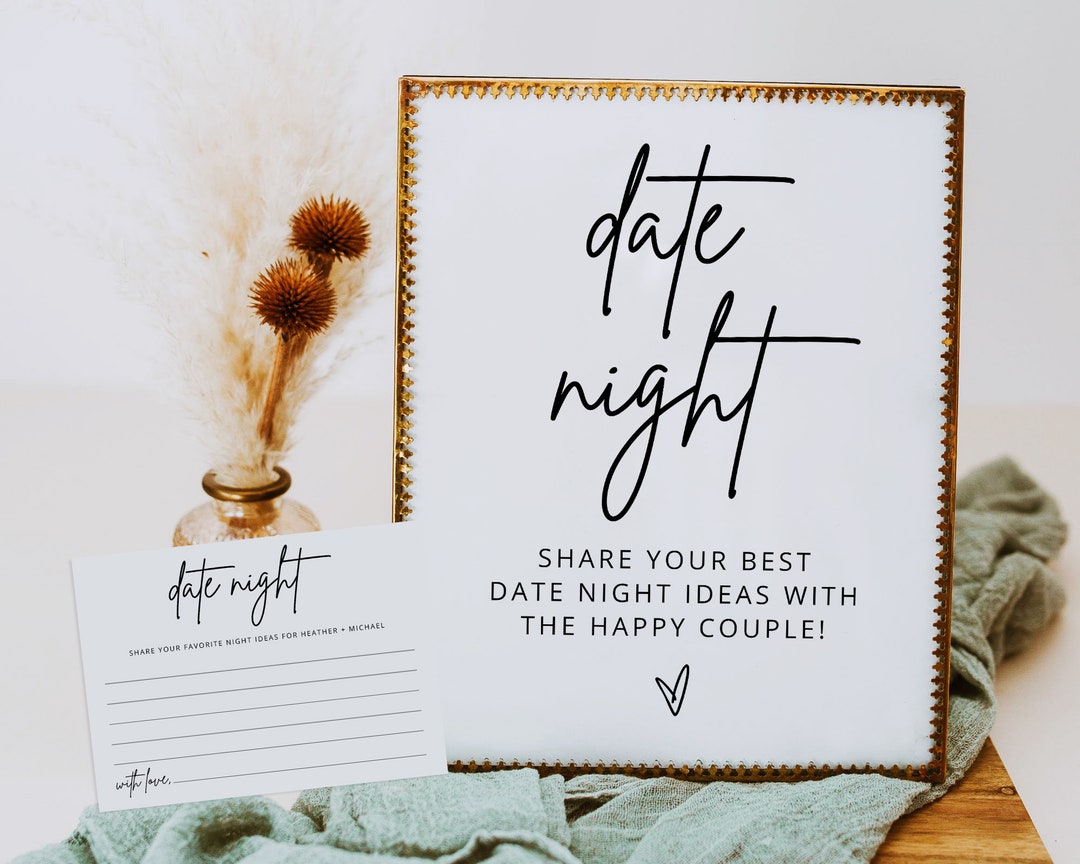 date
night
SHARE YOUR BEST
DATE NIGHT IDEAS WITH
THE HAPPY COUPLE!
date night
SHARE YOUR FAVORITE NIGHT IDEAS FOR HEATHER + MICHAEL
with love,